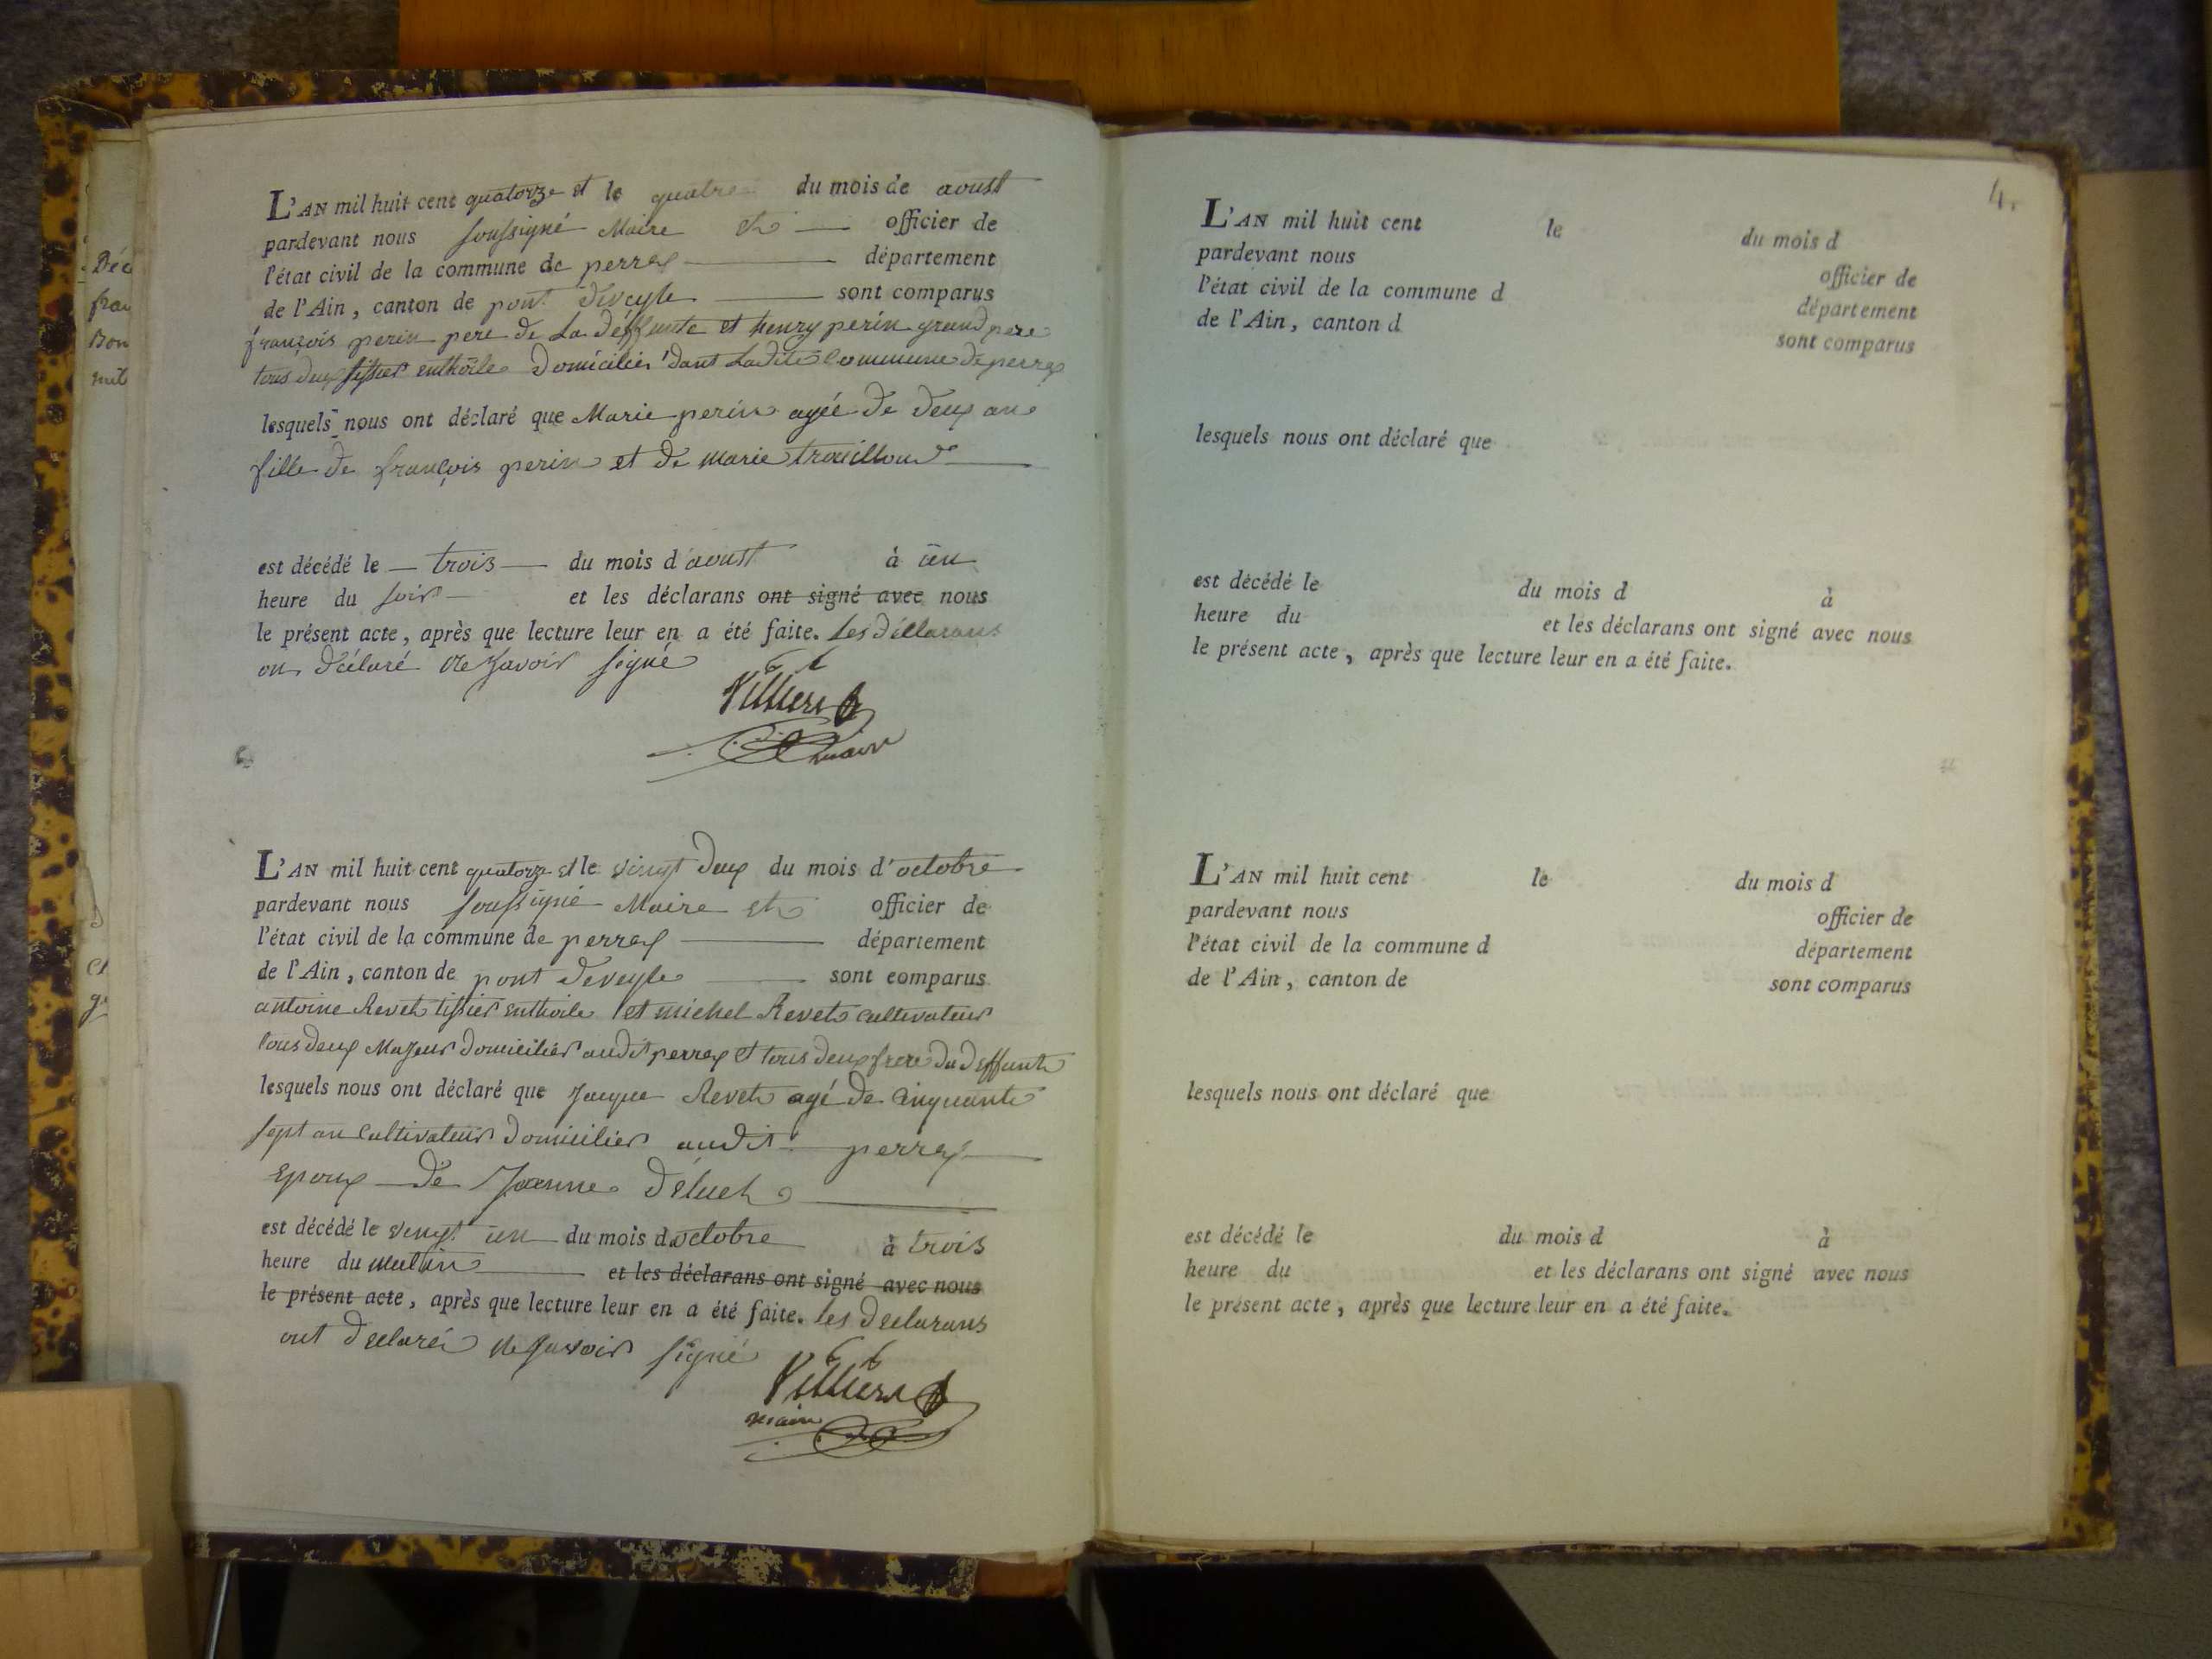 L'AN mil huit cent quatorze et le quatre du mois de aoust
pardevant nous soussigné Maire et officier de
l'état civil de la commune de perrex département
de l'Ain, canton de pont deveyle sont comparus
françois perin pere de La deffunte et henry perin grand pere
tous deux tissier enthoile Domicilier dant Ladite Commune de perrex
lesquels nous ont déclaré que Marie perin agée de deux ans
fille de françois perin et de marie trouilloud
est décédé le trois du mois d'aoust à un
heure du soir et les déclarans ont signé avec nous
le présent acte, après que lecture leur en a été faite. Les déclarans
on déclaré ne savoir signé
Villierd
maire
L'AN mil huit cent quatorze et le vingt deux du mois d'octobre
pardevant nous soussigné Maire et officier de
l'état civil de la commune de perrex département
de l'Ain, canton de pont deveyle sont comparus
antoine Revet tissier enthoile et michel Revet cultivateur
tous deux Majeur domicilier audit perrex et tous deux frere du deffunt
lesquels nous ont déclaré que Jaque Revet agé de cinquante
sept an cultivateur domicilier audit perrex
Epoux de Jeanne
est décédé le vingt un du mois d'octobre à trois
heure du matin et les déclarans ont signé avec nous
le présent acte, après que lecture leur en a été faite. les declarans
ont declaré ne savoir signé
Villierd
maire
4.
L'AN mil huit cent le du mois d
pardevant nous officier de
l'état civil de la commune d département
de l'Ain, canton d sont comparus
lesquels nous ont déclaré que
est décédé le du mois d à
heure du et les déclarans ont signé avec nous
le présent acte, après que lecture leur en a été faite.
L'AN mil huit cent le du mois d
pardevant nous officier de
l'état civil de la commune d département
de l'Ain, canton de sont comparus
lesquels nous ont déclaré que
est décédé le du mois d à
heure du et les déclarans ont signé avec nous
le présent acte, après que lecture leur en a été faite.